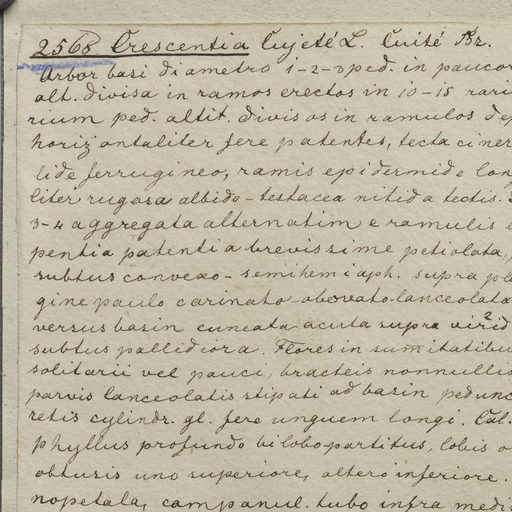 2568 Crescentia Cujeté L. Cuité Br.
Arbor basi diametro 1-2-3 ped. in paucor
alt. divisa in ramos erectos in 10-15 rari
rium ped. altit. divisos in ramulos de
horizontaliter fere patentes, tecta ciner
lide ferrugineo, ramis epidermide lon
liter rugosa albido-testacea nitida tectis.
3-4 aggregata alternatim e ramulis
pentia patentia brevissime petiolata,
subtus convexo-semihemiaph. supra pl
gine paulo carinato obovato-lanceolata
versus basin cuneata-acuta supra virid
subtus pallidiora. Flores in sumitatibu
solitarii vel pauci, bracteis nonnullis
parvis lanceolatis stipati ad basin pedunc
retis cylindr. gl. fere unguem longi. Cal.
phyllus profundo bilobo-partitus, lobis o
obtusis uno superiore, altero inferiore.
nopetala, campanul. tubo infra medi